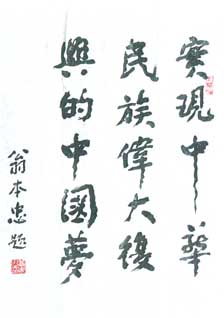 實現中華
民族偉大復
興的中國夢
翁本忠題